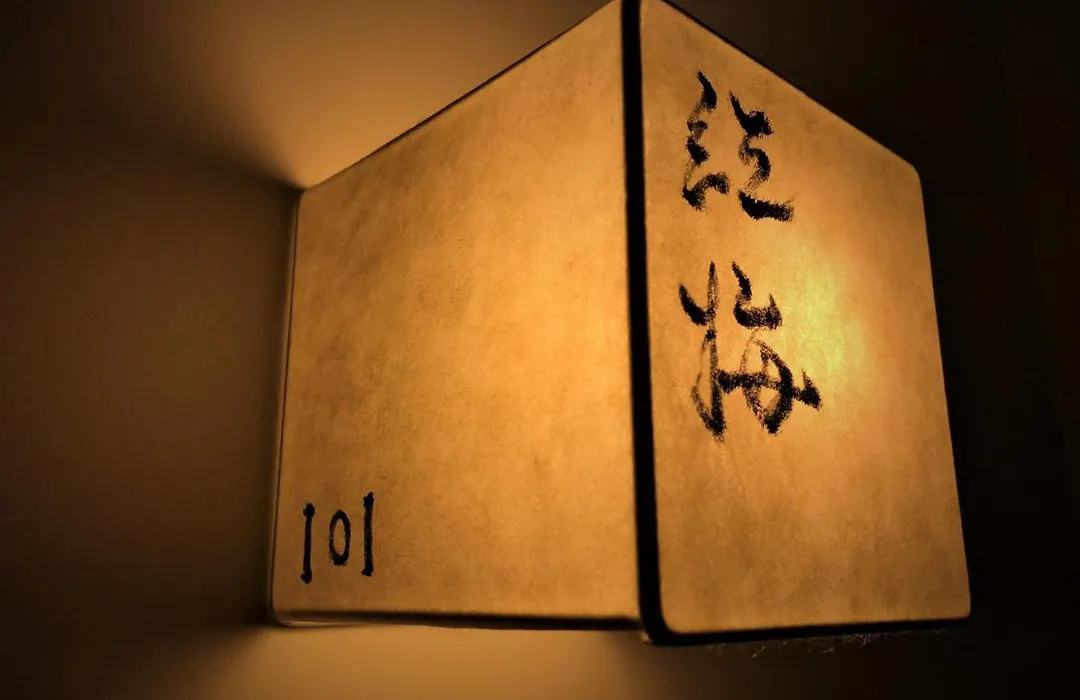 紅梅
101